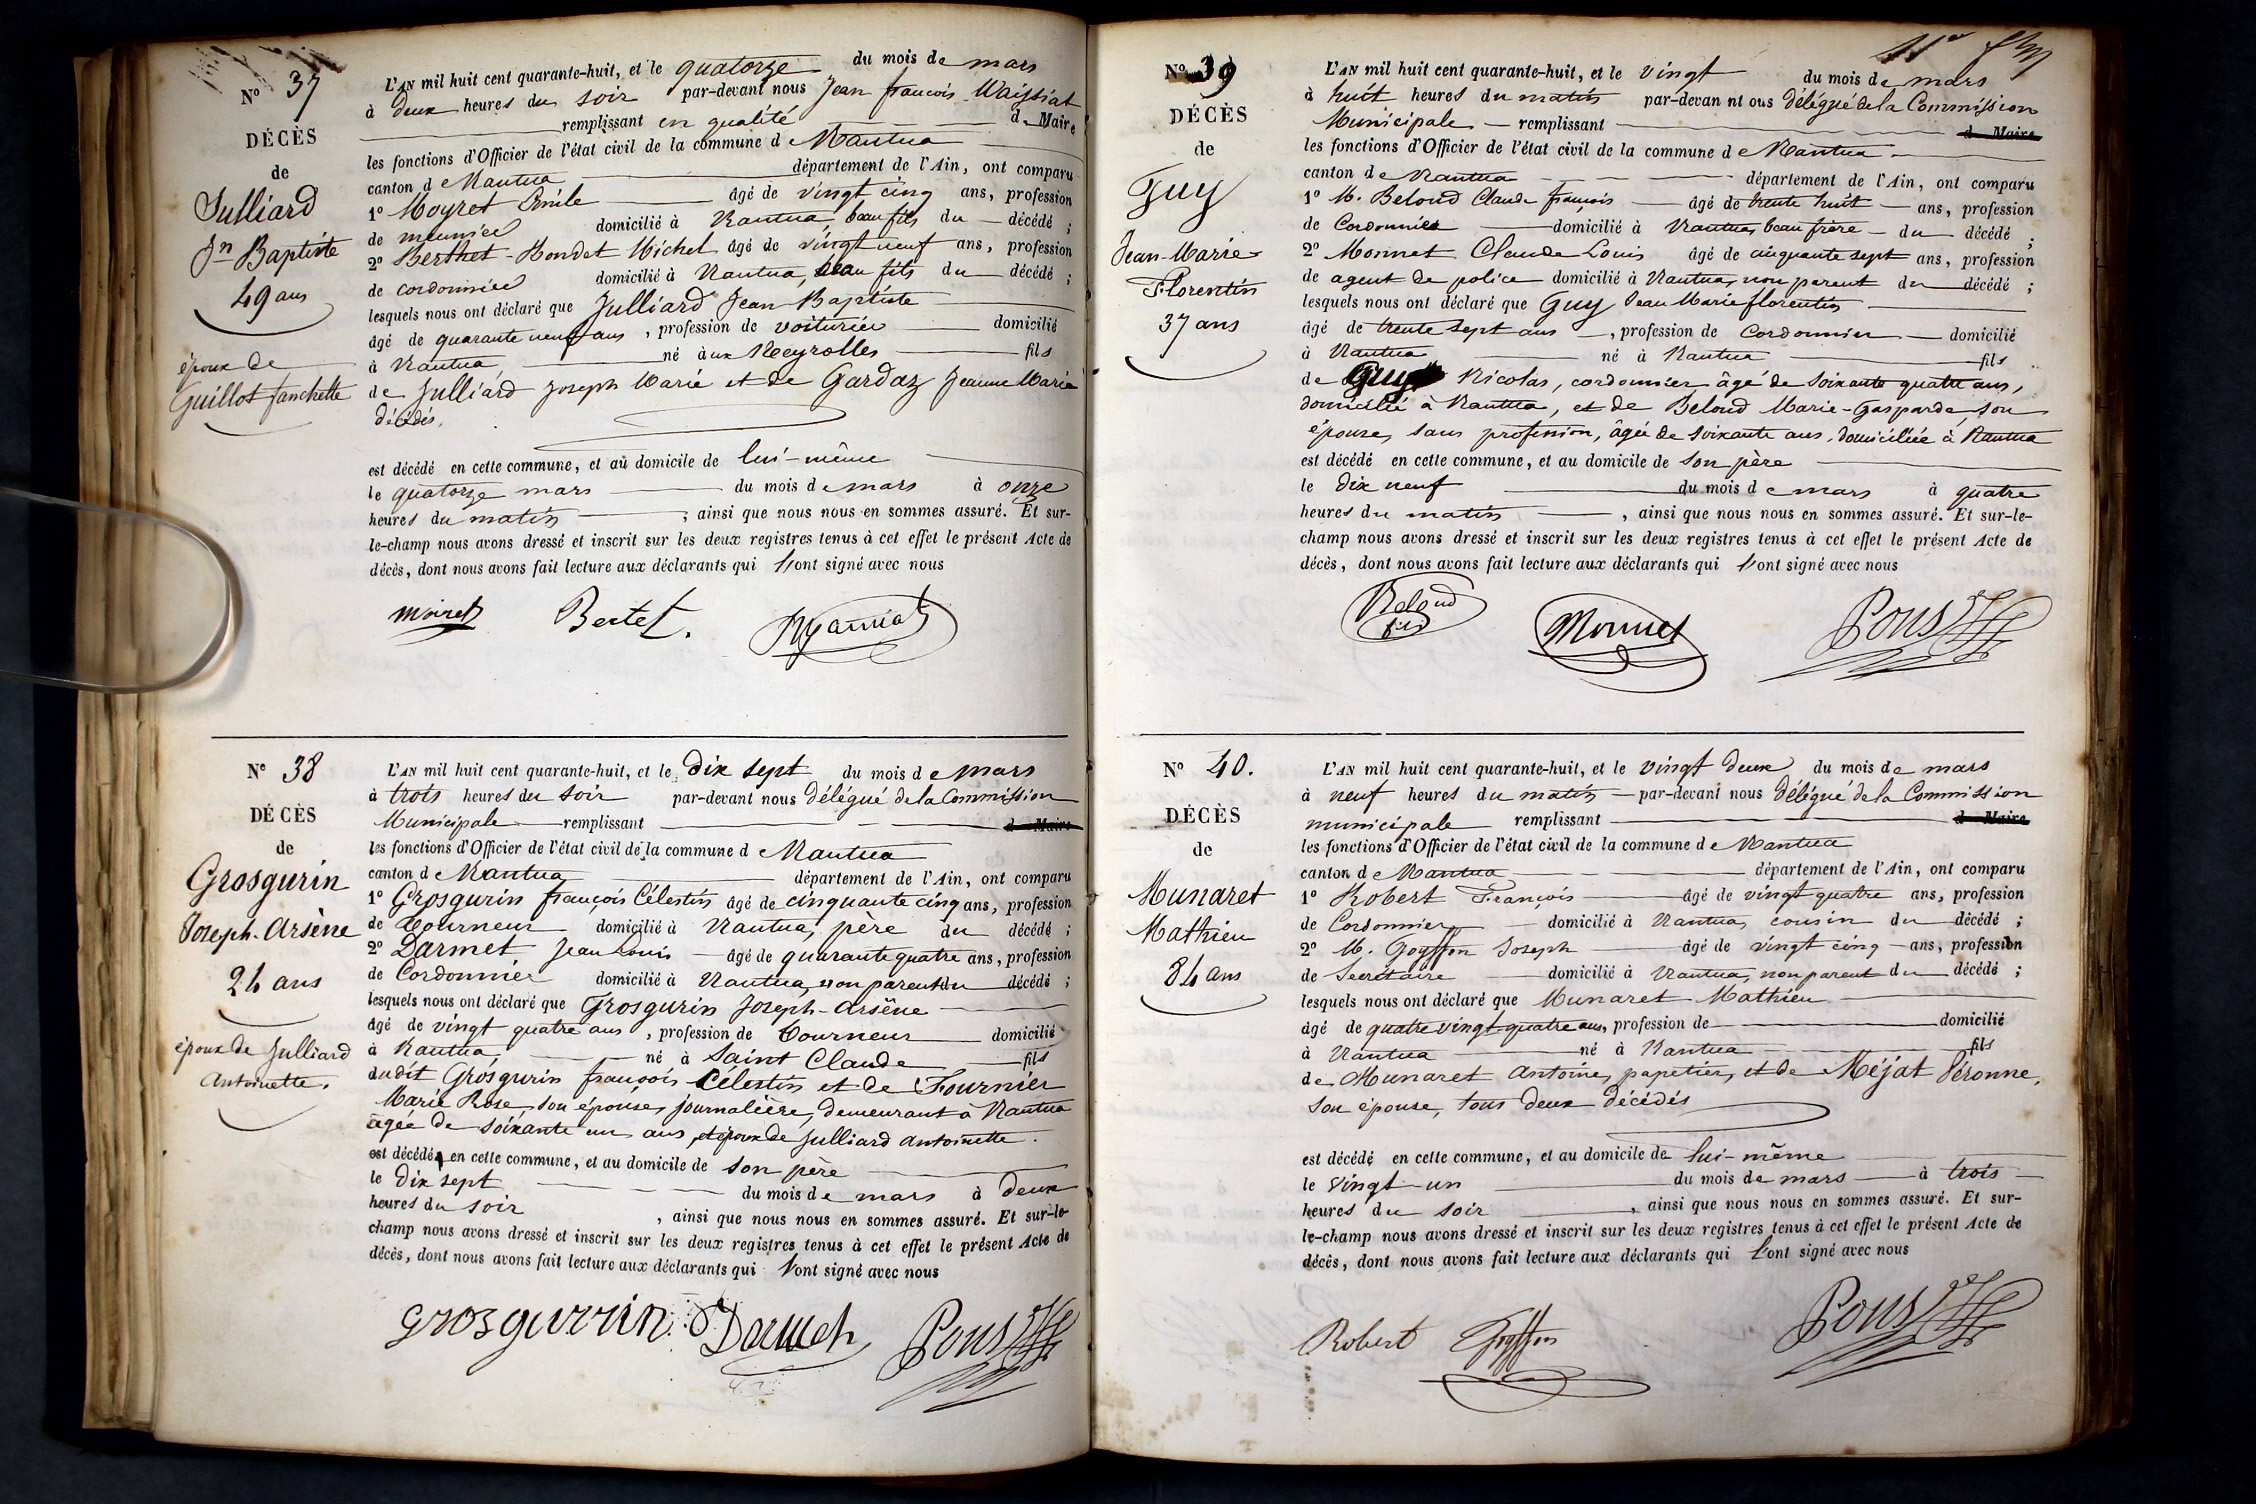 Nº 37
DÉCÈS
de
Julliard
Jn Baptiste
49 ans
époux de
Guillot fanchette
L'AN mil huit cent quarante-huit, et le quatorze du mois de mars
à deux heures du soir par-devant nous Jean françois Waissiat
remplissant en qualité de Maire
les fonctions d'Officier de l'état civil de la commune de Nantua
canton de Nantua département de l'Ain, ont comparu
1º Moyret Emile âgé de vingt cinq ans, profession
de meunier domicilié à Nantua, beau fils du décédé ;
2º Berthet-Bondet Michel âgé de vingt neuf ans, profession
de cordonnier domicilié à Nantua, beau fils du décédé ;
lesquels nous ont déclaré que Julliard Jean Baptiste
âgé de quarante neuf ans, profession de voiturier domicilié
à Nantua, né aux Neyrolles fils
de Julliard Joseph Marie et de Gardaz Jeanne Marie
décédés.
est décédé en cette commune, et au domicile de lui-même
le quatorze mars du mois de mars à onze
heures du matin ; ainsi que nous nous en sommes assuré. Et sur-
le-champ nous avons dressé et inscrit sur les deux registres tenus à cet effet le présent Acte de
décès, dont nous avons fait lecture aux déclarants qui l'ont signé avec nous
moiret Bertet.
Nº 38
DÉCÈS
de
Grosgurin
Joseph-Arsène
24 ans
époux de Julliard
Antoinette.
L'AN mil huit cent quarante-huit, et le dix sept du mois de mars
à trois heures du soir par-devant nous délégué de la Commission
Municipale remplissant d Maire
les fonctions d'Officier de l'état civil de la commune d Nantua
canton d Nantua département de l'Ain, ont comparu
1º Grosgurin françois Célestin âgé de cinquante cinq ans, profession
de Tourneur domicilié à Nantua, père du décédé ;
2º Darmet Jean Louis âgé de quarante quatre ans, profession
de Cordonnier domicilié à Nantua, non parent du décédé ;
lesquels nous ont déclaré que Grosgurin Joseph-Arsène
âgé de vingt quatre ans, profession de Tourneur domicilié
à Nantua, né à Saint Claude fils
dudit Grosgurin françois-Célestin et de Fournier
Marie Rose, son épouse, journalière, demeurant à Nantua
agée de soixante un ans, et époux de Julliard antoinette.
est décédé en cette commune, et au domicile de son père
le dix sept du mois de mars à deux
heures du soir, ainsi que nous nous en sommes assuré. Et sur-le-
champ nous avons dressé et inscrit sur les deux registres tenus à cet effet le présent Acte de
décès, dont nous avons fait lecture aux déclarants qui l'ont signé avec nous
Grosgurrin Darmet Pons
Nº 39
DÉCÈS
de
Guy
Jean-Marie-
Florentin
37 ans
L'AN mil huit cent quarante-huit, et le vingt du mois de mars
à huit heures du matin par-devan nt ous délégué de la Commission
Municipale remplissant d Maire
les fonctions d'Officier de l'état civil de la commune de Nantua
canton de Nantua département de l'Ain, ont comparu
1º M. Beloud Claude françois âgé de trente huit ans, profession
de Cordonnier domicilié à Nantua, beau frère du décédé ;
2º Monnet Claude Louis âgé de cinquante sept ans, profession
de agent de police domicilié à Nantua, non parent du décédé ;
lesquels nous ont déclaré que Guy Jean Marie florentin
âgé de trente sept ans, profession de cordonnier domicilié
à Nantua né à Nantua fils
de Guy Nicolas, cordonnier âgé de soixante quatre ans,
domicilié à Nantua, et de Beloud Marie-Gasparde, son
épouse, sans profession, âgée de soixante ans, domiciliée à Nantua
est décédé en cette commune, et au domicile de son père
le dix neuf du mois de mars à quatre
heures du matin, ainsi que nous nous en sommes assuré. Et sur-le-
champ nous avons dressé et inscrit sur les deux registres tenus à cet effet le présent Acte de
décès, dont nous avons fait lecture aux déclarants qui l'ont signé avec nous
Beloud fils Monnet Pons
Nº 40.
DÉCÈS
de
Munaret
Mathieu
84 ans
L'AN mil huit cent quarante-huit, et le vingt deux du mois de mars
à neuf heures du matin par-devant nous délégué de la Commission
municipale remplissant d Maire
les fonctions d'Officier de l'état civil de la commune de Nantua
canton de Nantua département de l'Ain, ont comparu
1º Robert François âgé de vingt quatre ans, profession
de Cordonnier domicilié à Nantua, cousin du décédé ;
2º M. Goyffon Joseph âgé de vingt cinq ans, profession
de Secrétaire domicilié à Nantua, non parent du décédé ;
lesquels nous ont déclaré que Munaret Mathieu
âgé de quatre vingt quatre ans, profession de domicilié
à Nantua né à Nantua fils
de Munaret Antoine, papetier, et de Méjat Péronne,
son épouse, tous deux décédés
est décédé en cette commune, et au domicile de lui-même
le vingt un du mois de mars à trois
heures du soir, ainsi que nous nous en sommes assuré. Et sur-
le-champ nous avons dressé et inscrit sur les deux registres tenus à cet effet le présent Acte de
décès, dont nous avons fait lecture aux déclarants qui l'ont signé avec nous
Robert Goyffon Pons